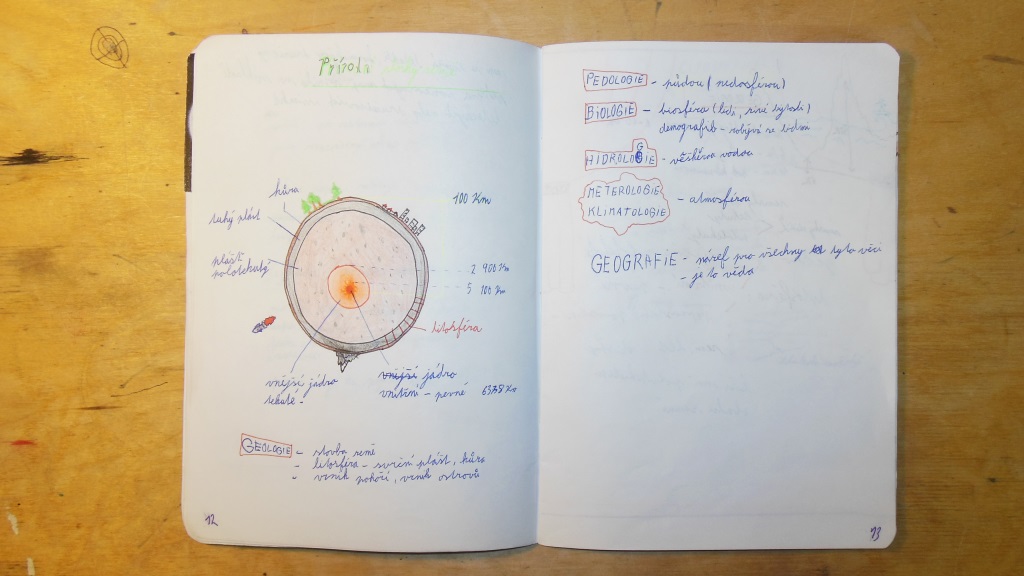 Přírodní
kůra
tuhý plášť
plášť
polotekutý
100 Km
2 900 Km
5 100 Km
litosféra
vnější jádro
tekuté -
vnější jádro
vnitřní - pevné 6378 Km
GEOLOGIE - stavba země
- litosféra - svrchní plášť, kůra
- vznik pohoří, vznik ostrovů
12
PEDOLOGIE - půdou (pedosférou)
BIOLOGIE - biosféra (lidi, živé bytosti)
demografie - zabývá se lidma
HIDROLOGIE - věškěrou vodou
METEROLOGIE
KLIMATOLOGIE - atmosférou
GEOGRAFIE - název pro všechny tyto věci
- je to věda
13